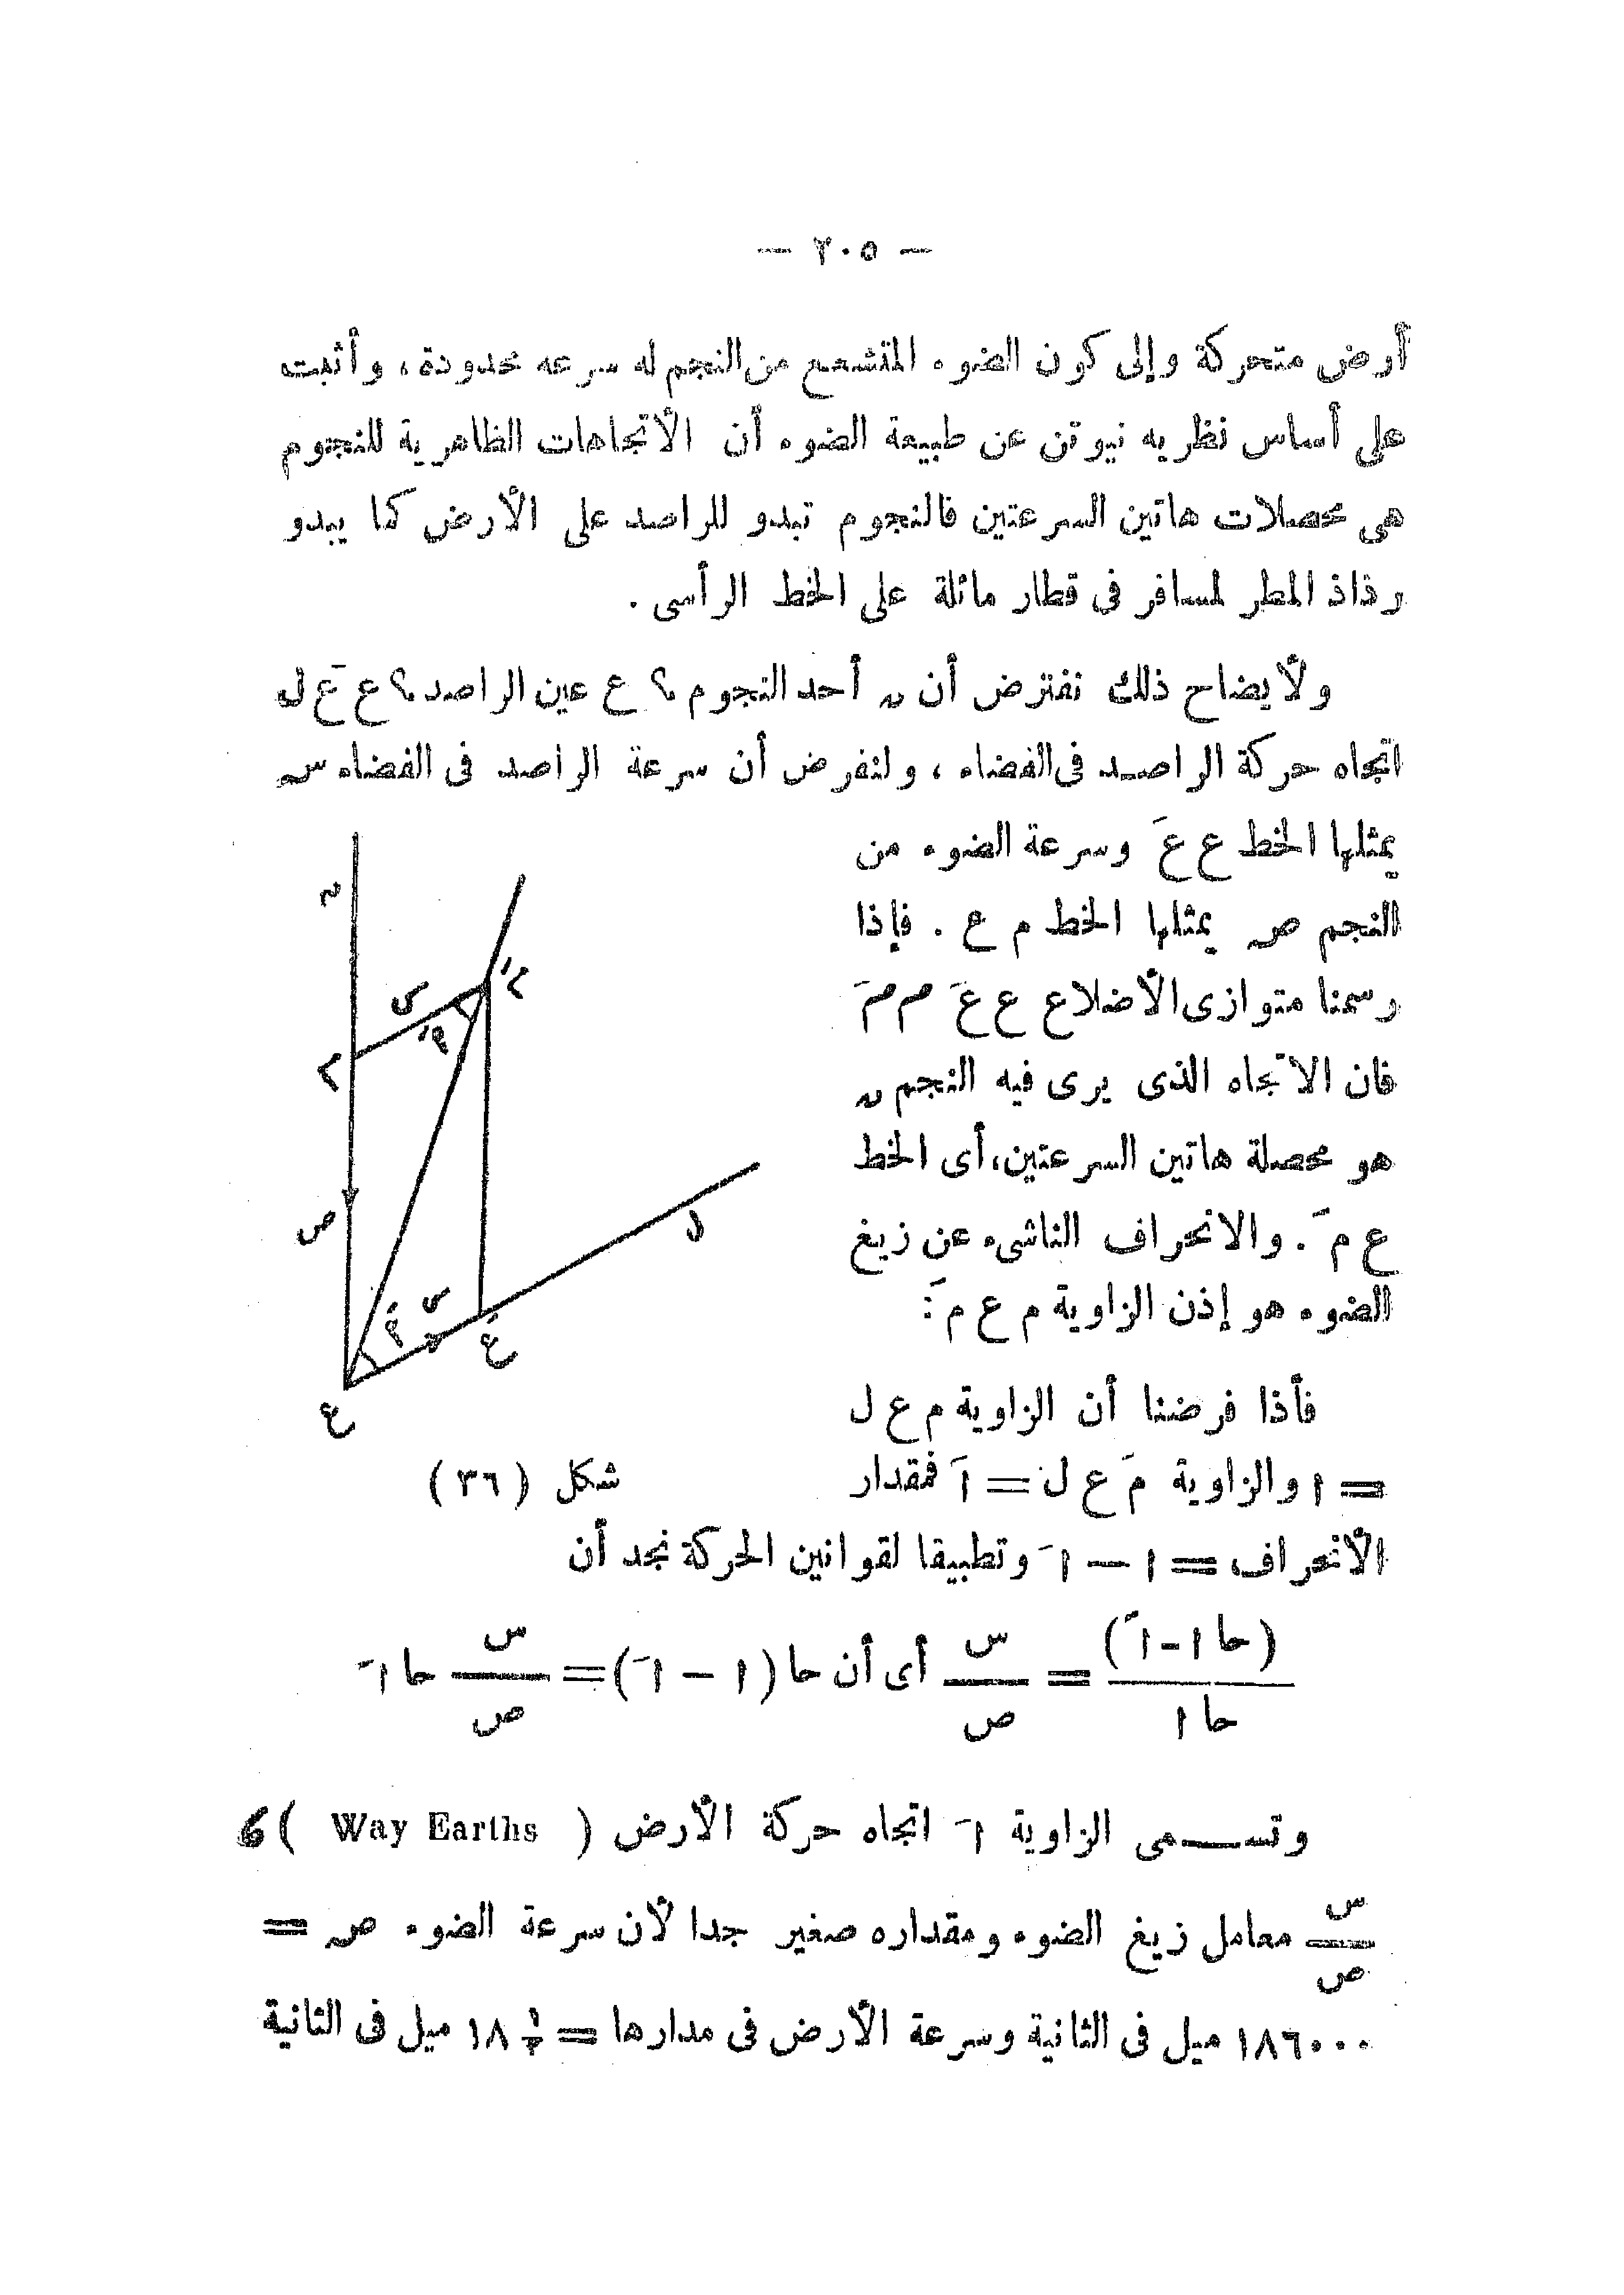 — ٢٠٥ —
أرض متحركة وإلى كون الضوء المتشعع من النجم له سرعه محدودة، وأثبت
على أساس نظريه نيوتن عن طبيعة الضوء أن الأتجاهات الظاهرية للنجوم
هى محصلات هاتين السرعتين فالنجوم تبدو للراصد على الأرض كما يبدو
رذاذ المطر لمسافر فى قطار مائلة على الخط الرأسى .
ولأيضاح ذلك نفترض أن ن أحد النجوم ؟ ع عين الراصد ؟ ع عَ ل
اتجاه حركة الراصد فى الفضاء ، ولنفرض أن سرعة الراصد فى الفضاء س
يمثلها الخط ع عَ وسرعة الضوء من
النجم ص يمثلها الخط م ع . فإذا
رسمنا متوازى الأضلاع ع عَ م مَ
فان الاتجاه الذى يرى فيه النجم ن
هو محصلة هاتين السرعتين، أى الخط
ع مَ . والانحراف الناشىء عن زيغ
الضوء هو إذن الزاوية م ع مَ :
فأذا فرضنا أن الزاوية م ع ل
= ا والزاوية مَ ع ل = اَ فمقدار
الأنحراف = ا — اَ وتطبيقا لقوانين الحركة نجد أن
ن
مَ
س
اَ
م
ص
ل
س
اَ
عَ
ع
شكل (٣٦)
(حا ا-اَ) / حا ا = س / ص أى أن حا (ا – اَ) = س / ص حا اَ
وتسمى الزاوية اَ اتجاه حركة الأرض ( Way Earths ) ؟
س / ص معامل زيغ الضوء ومقداره صغير جدا لأن سرعة الضوء ص =
١٨٦٠٠٠ ميل فى الثانية وسرعة الأرض فى مدارها = ١٨ ½ ميل فى الثانية